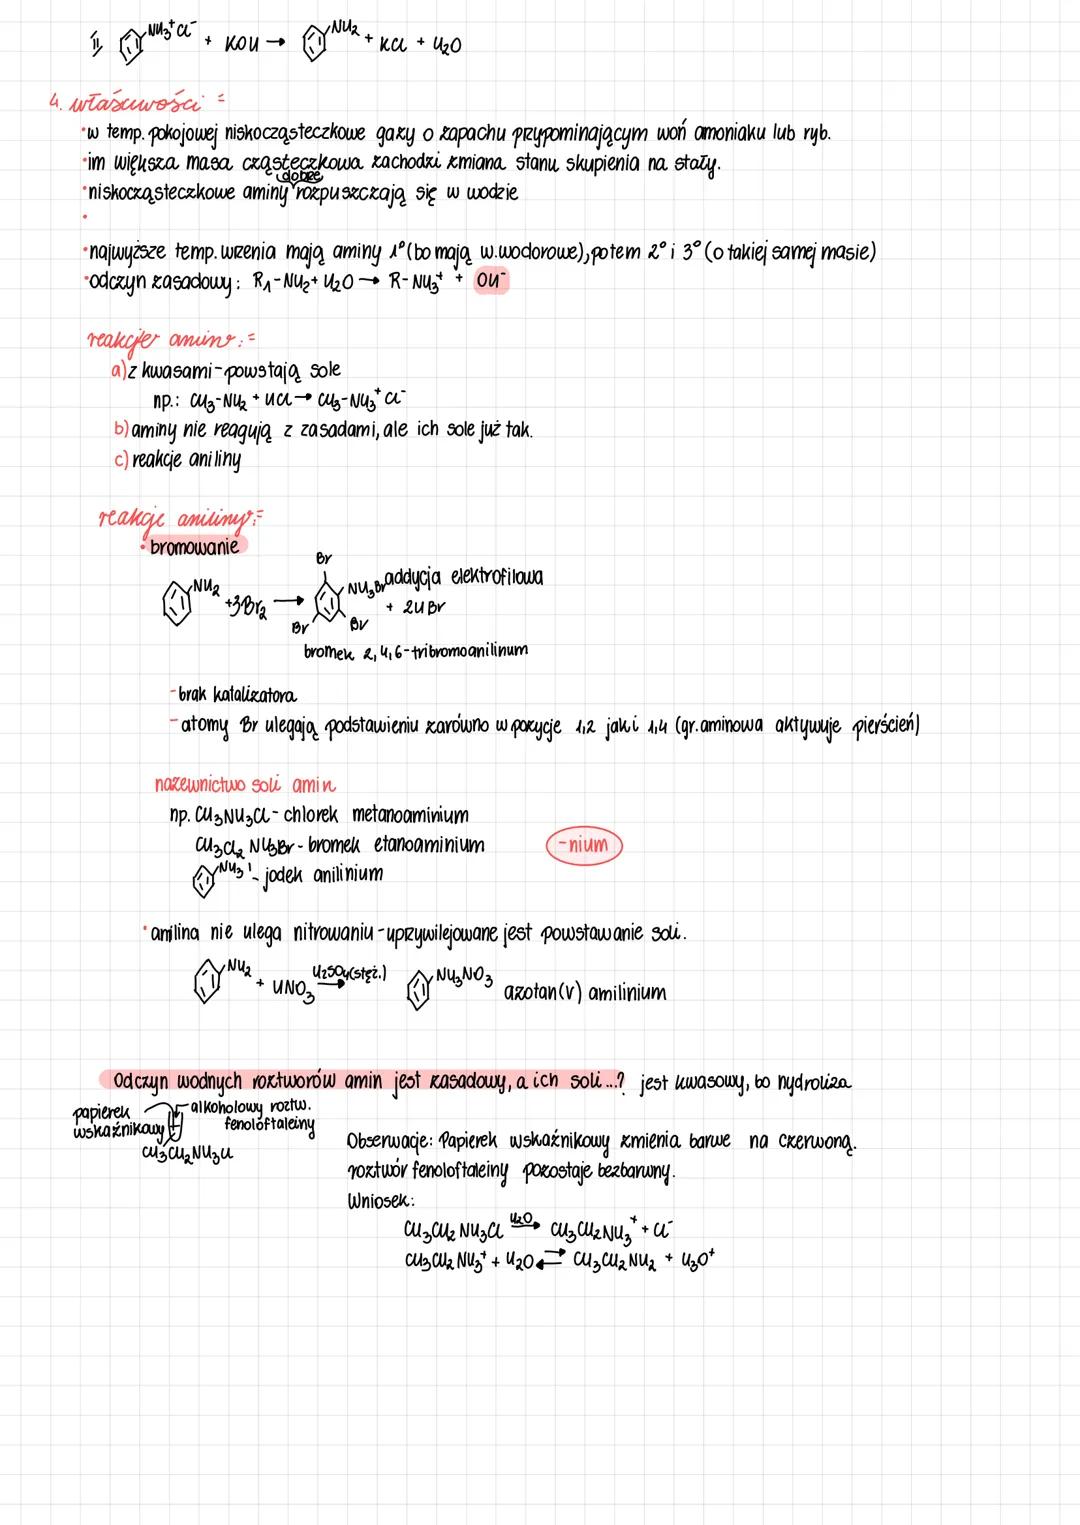 ii, NH₃⁺Cl⁻ + KOH → NH₂ + KCl + H₂O
4. właściwości =
•w temp. pokojowej niskocząsteczkowe gazy o zapachu przypominającym woń amoniaku lub ryb.
•im większa masa cząsteczkowa zachodzi zmiana stanu skupienia na stały.
dobrze
•niskocząsteczkowe aminy rozpuszczają się w wodzie
•
•najwyższe temp. wrzenia mają aminy 1° (bo mają w. wodorowe), potem 2° i 3° (o takiej samej masie)
•odczyn zasadowy: R₁-NH₂ + H₂O → R-NH₃⁺ + OH⁻
reakcje amin:=
a) z kwasami - powstają sole
np.: CH₃-NH₂ + HCl → CH₃-NH₃⁺Cl⁻
b) aminy nie reagują z zasadami, ale ich sole już tak.
c) reakcje aniliny
reakcje aniliny:=
• bromowanie
Br
NH₂ +3Br₂ → NH₃Br addycja elektrofilowa
+ 2HBr
Br Br
bromek 2,4,6-tribromoanilinum
-brak katalizatora
-atomy Br ulegają podstawieniu zarówno w pozycje 1,2 jak i 1,4 (gr. aminowa aktywuje pierścień)
nazewnictwo soli amin
np. CH₃NH₃Cl - chlorek metanoaminium
CH₃Cl₂ NH₃Br - bromek etanoaminium
-nium
NH₃I - jodek anilinium
• anilina nie ulega nitrowaniu - uprzywilejowane jest powstawanie soli.
NH₂ + HNO₃ H₂SO₄(stęż.) → NH₃NO₃ azotan(V) amilinium
Odczyn wodnych roztworów amin jest zasadowy, a ich soli...? jest kwasowy, bo hydroliza
papierek wskaźnikowy
alkoholowy roztw. fenoloftaleiny
CH₃CH₂NH₃Cl
Obserwacje: Papierek wskaźnikowy zmienia barwe na czerwoną.
roztwór fenoloftaleiny pozostaje bezbarwny.
Wniosek:
CH₃CH₂NH₃Cl H₂O → CH₃CH₂NH₃⁺ + Cl⁻
CH₃CH₂NH₃⁺ + H₂O ⇄ CH₃CH₂NH₂ + H₃O⁺